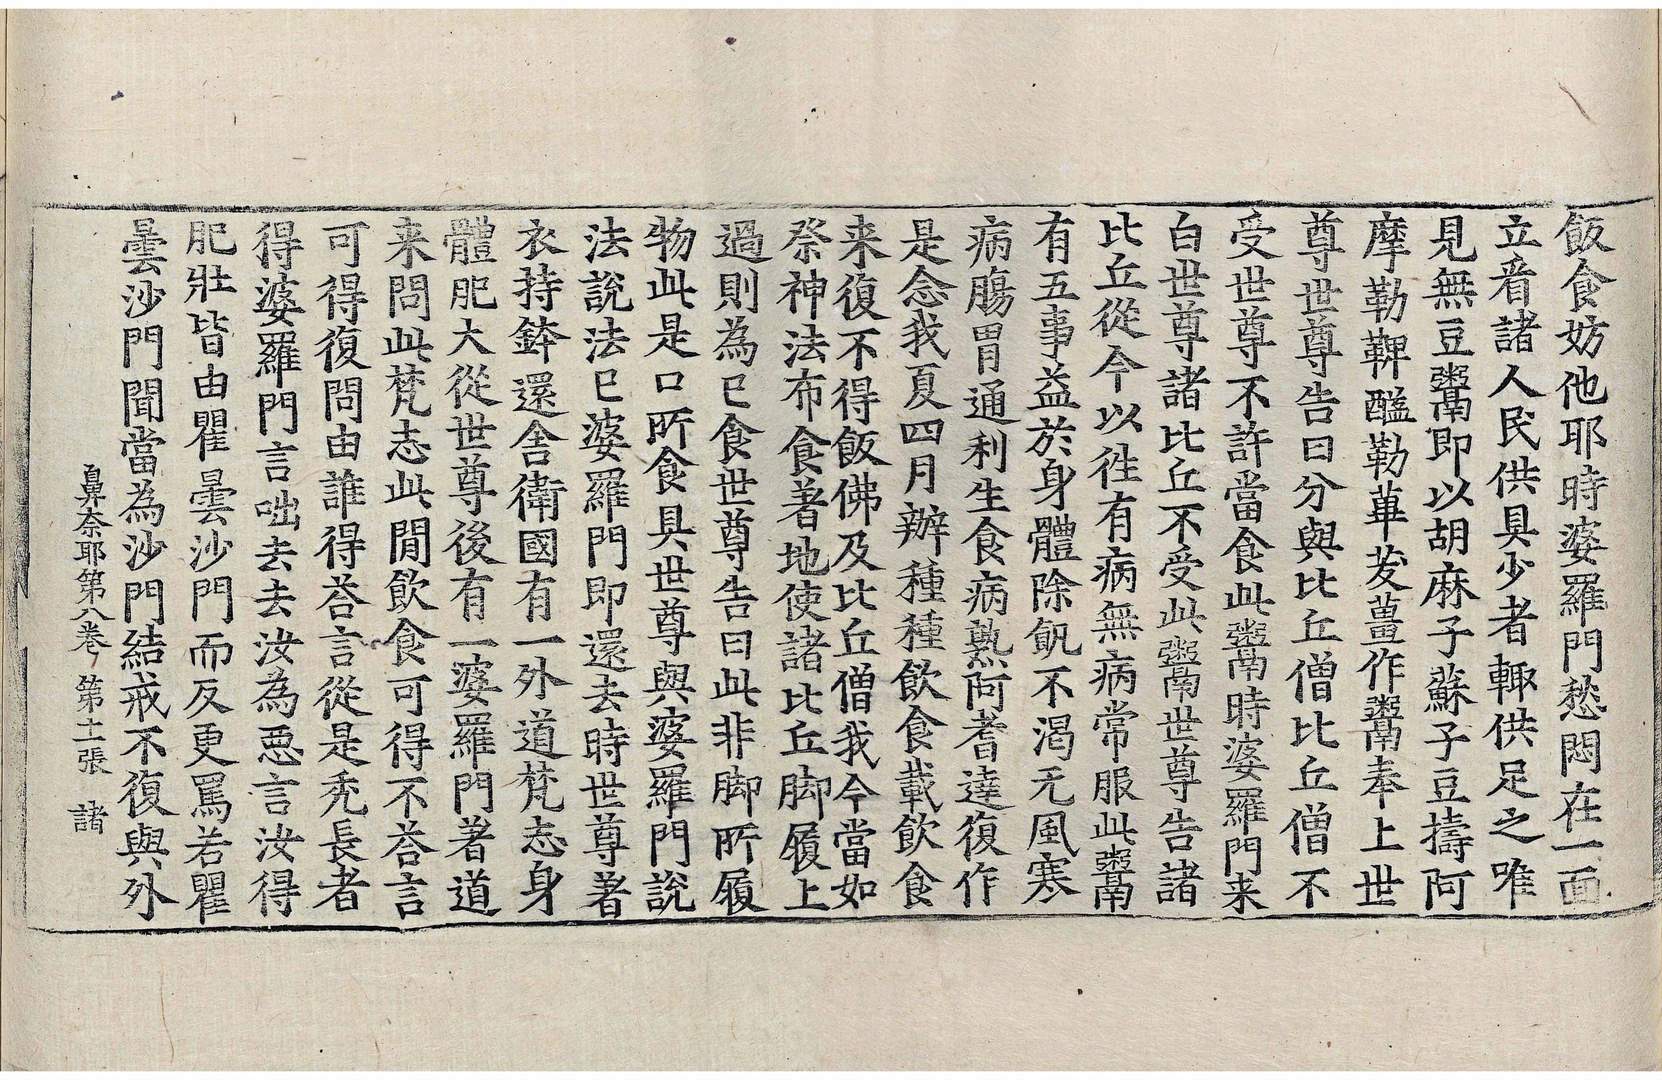 飯食妨他耶時婆羅門愁悶在一面
立看諸人民供具少者輙供足之唯
見無豆鬻即以胡麻子蘇子豆擣阿
摩勒鞞醯勒蓽茇薑作鬻奉上世
尊世尊告曰分與比丘僧比丘僧不
受世尊不許當食此鬻時婆羅門来
白世尊諸比丘不受此鬻世尊告諸
比丘從今以徃有病無病常服此鬻
有五事益於身體除飢不渴无風寒
病腸胃通利生食病熟阿耆達復作
是念我夏四月辦種種飲食載飲食
来復不得飯佛及比丘僧我今當如
祭神法布食著地使諸比丘脚履上
過則為已食世尊告曰此非脚所履
物此是口所食具世尊與婆羅門說
法說法已婆羅門即還去時世尊著
衣持鉢還舍衛國有一外道梵志身
體肥大從世尊後有一婆羅門著道
来問此梵志此間飲食可得不荅言
可得復問由誰得荅言從是禿長者
得婆羅門言咄去去汝為惡言汝得
肥壯皆由瞿曇沙門而反更罵若瞿
曇沙門聞當為沙門結戒不復與外
鼻奈耶第八卷 第十一張 諸